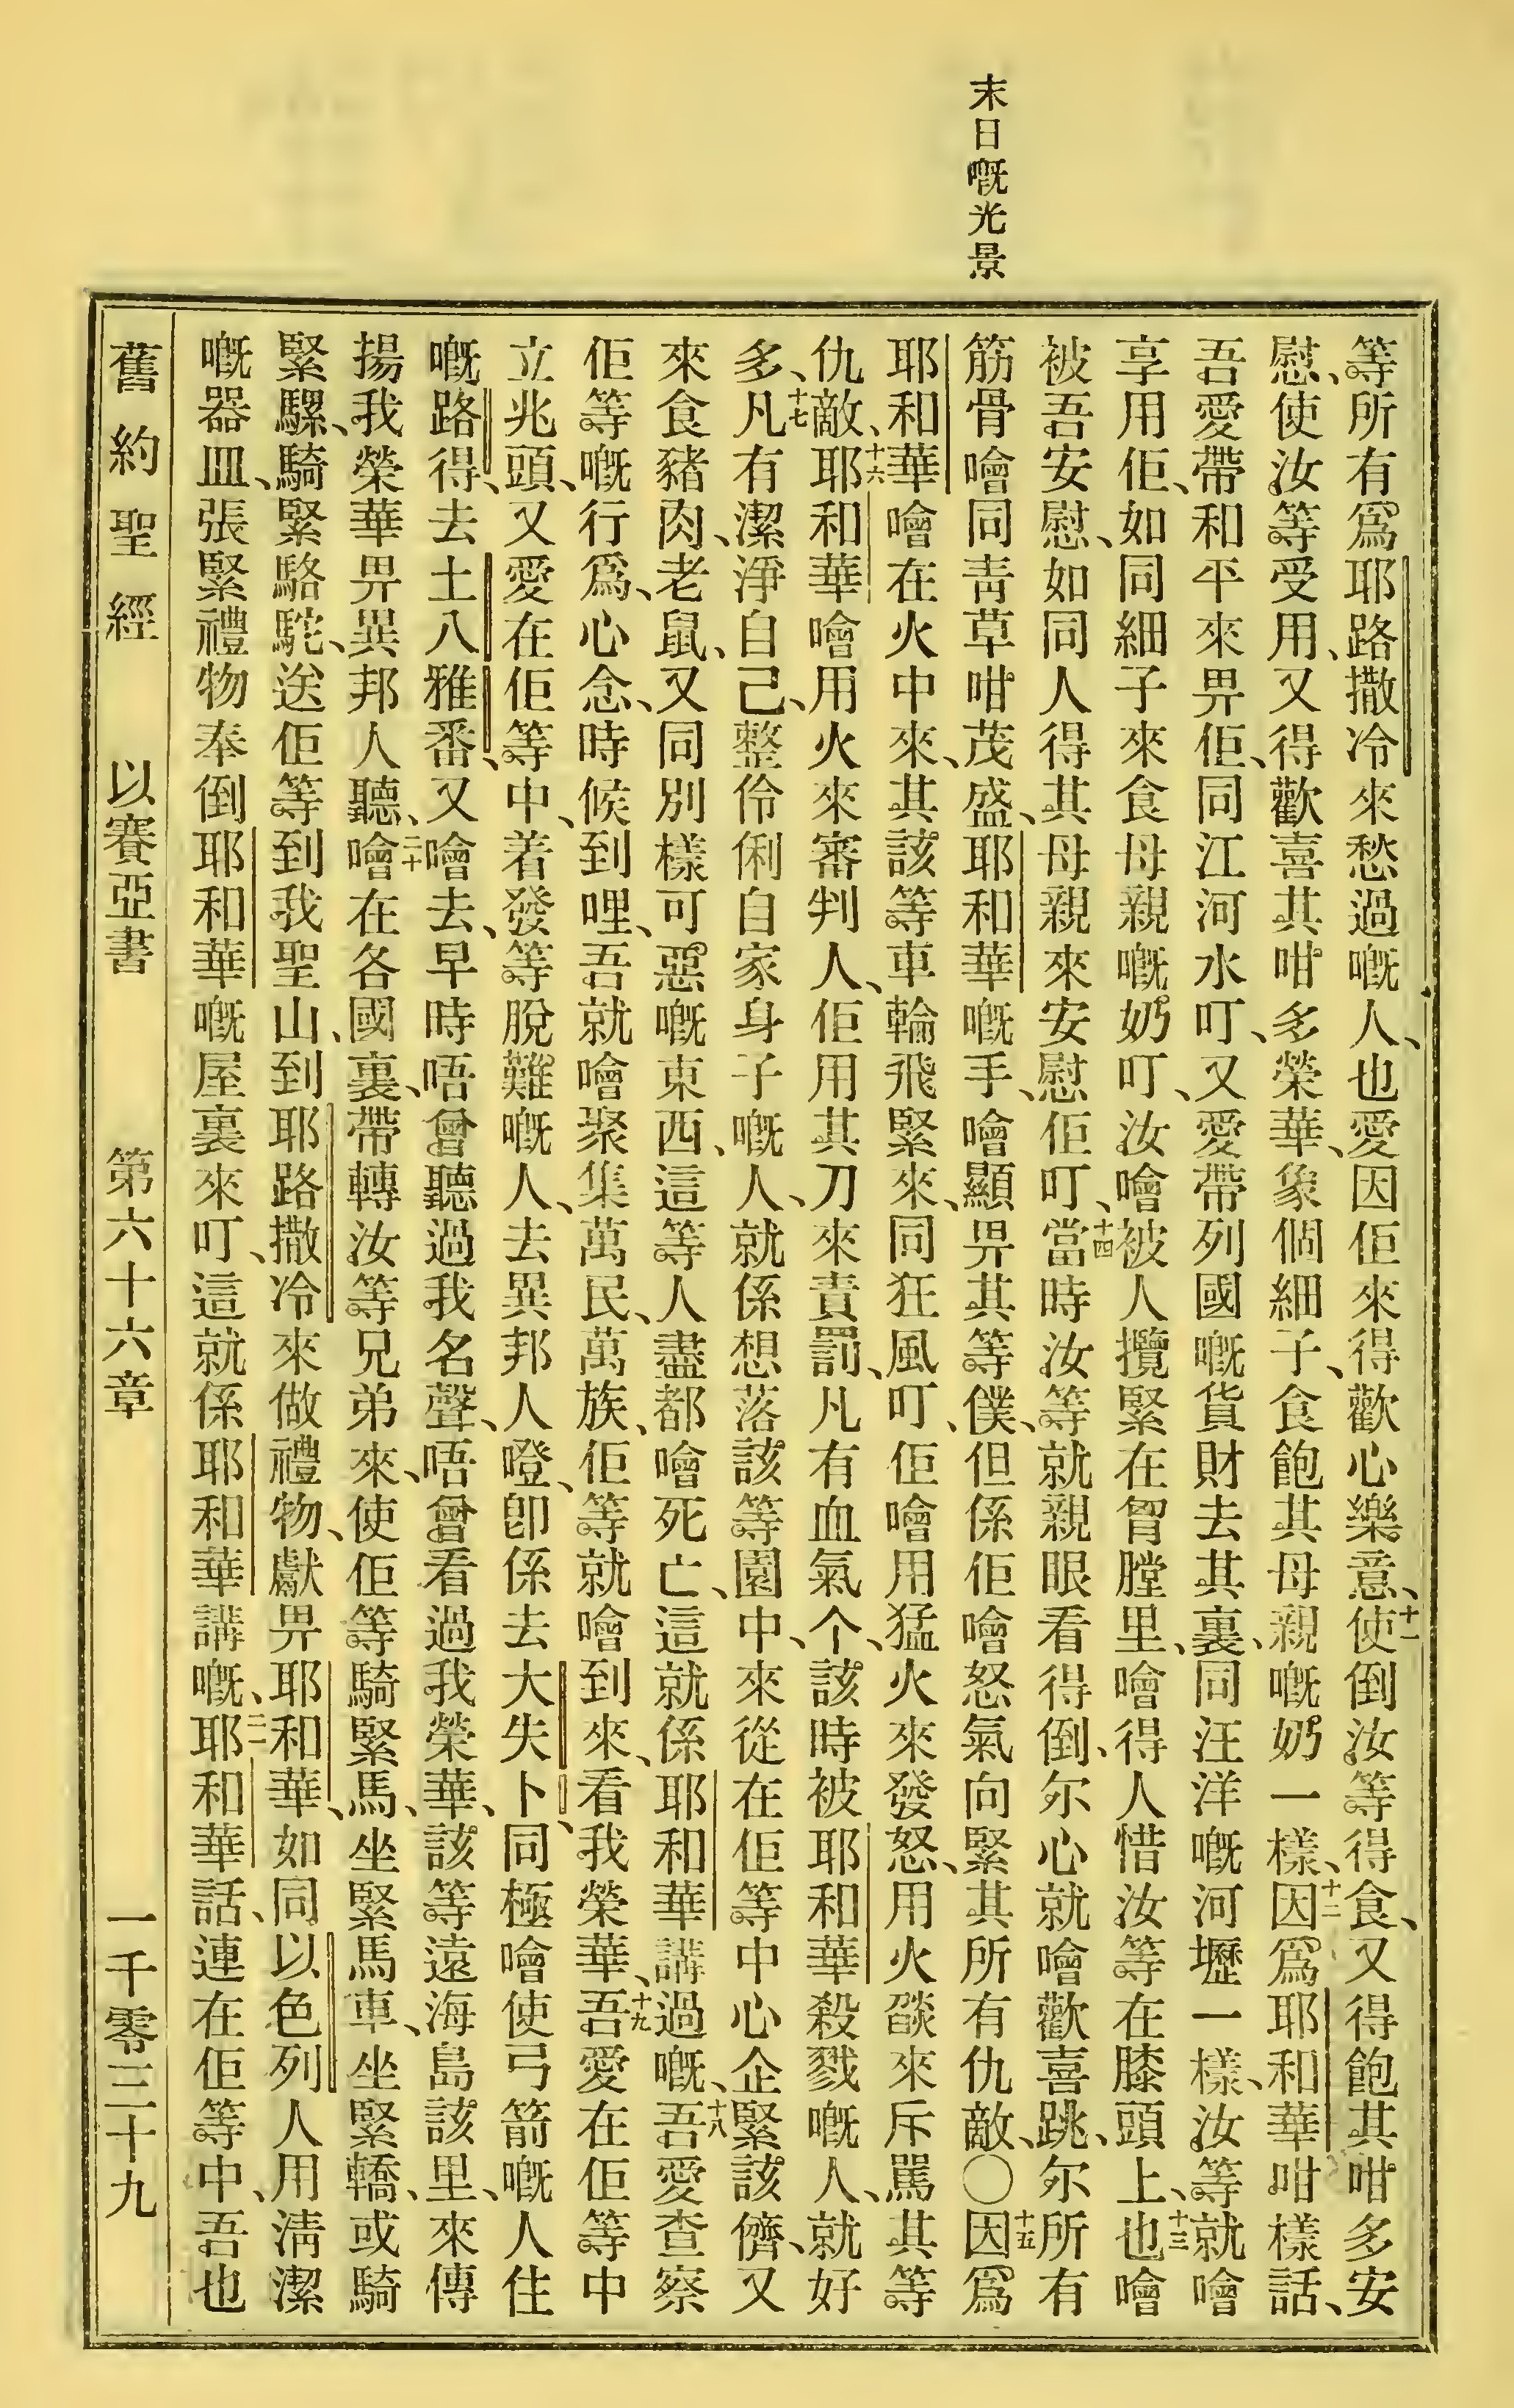 末日嘅光景
等所有爲耶路撒冷來愁過嘅人、也愛因佢來得歡心樂意、十一使倒汝等得食、又得飽其咁多安
慰、使汝等受用、又得歡喜其咁多榮華、象個細子、食飽其母親嘅奶一樣、十二因爲耶和華咁樣話、
吾愛帶和平來畀佢、同江河水叮、又愛帶列國嘅貨財去其裏、同汪洋嘅河壢一樣、汝等就噲
享用佢、如同細子來食母親嘅奶叮、汝噲被人攬緊在胷膛里、噲得人惜汝等在膝頭上、十三也噲
被吾安慰、如同人得其母親來安慰佢叮、十四當時汝等就親眼看得倒、尔心就噲歡喜跳、尔所有
筋骨噲同青草咁茂盛、耶和華嘅手、噲顯畀其等僕、但係佢噲怒氣向緊其所有仇敵、〇十五因爲
耶和華噲在火中來、其該等車輪飛緊來、同狂風叮、佢噲用猛火來發怒、用火燄來斥駡其等
仇敵、十六耶和華噲用火來審判人、佢用其刀來責罰、凡有血氣个、該時被耶和華殺戮嘅人、就好
多、十七凡有潔淨自己、整伶俐自家身子嘅人、就係想落該等園中、來從在佢等中心企緊該儕、又
來食豬肉、老鼠、又同別樣可惡嘅東西、這等人盡都噲死亡、這就係耶和華講過嘅、十八吾愛查察
佢等嘅行爲、心念、時候到哩、吾就噲聚集萬民、萬族、佢等就噲到來、看我榮華、十九吾愛在佢等中
立兆頭、又愛在佢等中、着發等脫難嘅人、去異邦人噔、卽係去大失卜、同極噲使弓箭嘅人住
嘅路得、去土八雅番、又噲去、早時唔曾聽過我名聲、唔曾看過我榮華、該等遠海島該里、來傳
揚我榮華畀異邦人聽、二十噲在各國裏、帶轉汝等兄弟來、使佢等騎緊馬、坐緊馬車、坐緊轎、或騎
緊騾、騎緊駱駝、送佢等到我聖山、到耶路撒冷來做禮物、獻畀耶和華、如同以色列人用淸潔
嘅器皿、張緊禮物奉倒耶和華嘅屋裏來叮、這就係耶和華講嘅、二一耶和華話、連在佢等中、吾也
舊約聖經 以賽亞書 第六十六章 一千零三十九